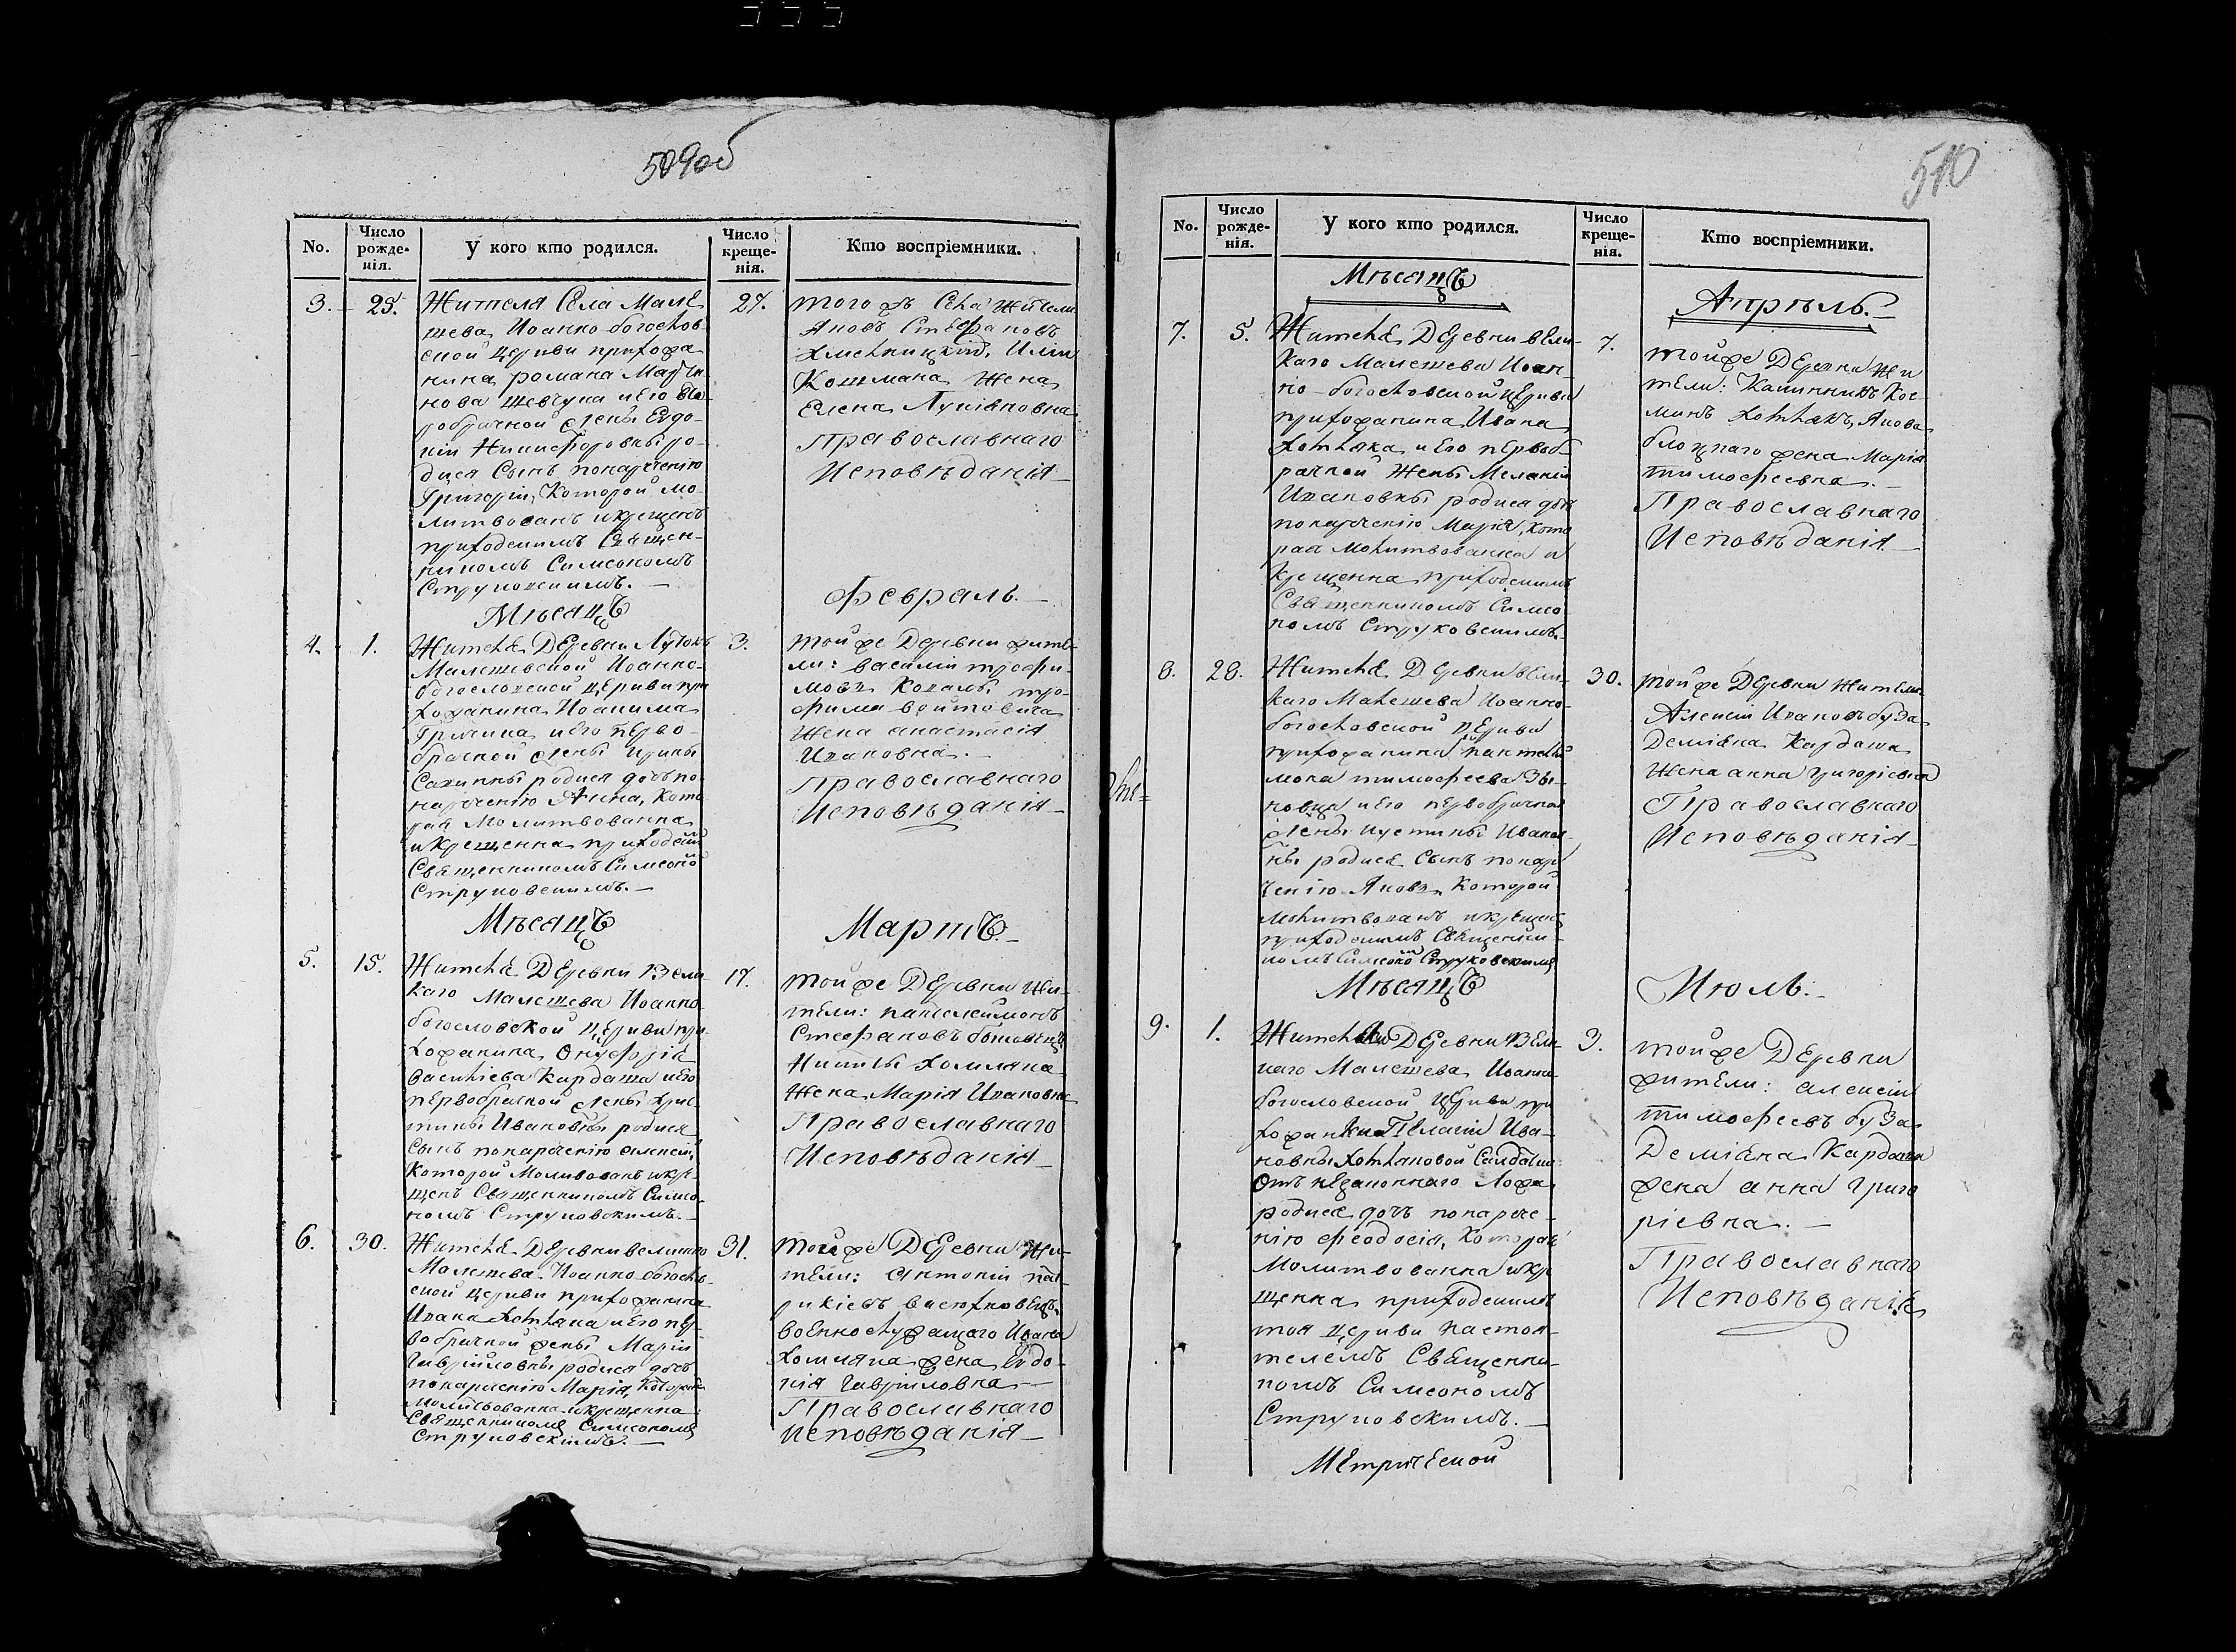 509об
No.
Число рожденія.
У кого кто родился.
Число крещенія.
Кто воспріемники.
3.
25.
Жителя Села Мале
шева Иоанно-богослов
ской церкви прихожа
нина романа Марти
нова Шевчука и его
робрачной жены Евдо
кіи Никифоровны ро
дися Сынъ понареченію
Григорій, Которой мо
литвованъ и крещенъ
приходскимъ Священ-
никомъ Симеономъ
Струковскимъ.
27.
того жъ Села жители
Яковъ Стефановъ
Хмелницкій, Иліи
Кошмана Жена
Елена Лукіяновна
Православнаго
Исповѣданія
Мѣсяцъ
Февраль.
4.
1.
Жителя Деревни
Малешевской Иоанно-
богословской церкви при
хожанина Иоакима
и его перво
брачной жены Ирины
родися дочь по
нареченію Анна, Кото
рая Молитвованна
и Крещенна приходским
Священникомъ Симеоно
Струковскимъ.
3.
тойже Деревни жите
ли: василій трофи-
мовъ Коваль, тро-
фима войтовича
Жена анастасія
Ивановна.
Православнаго
Исповѣданія
Мѣсяцъ
Мартъ.
5.
15.
Жителя Деревни Вели
каго Малешева Иоанно
богословской церкви при
хожанина Онуфрія
Василіева Кардаша и его
первобрачной жены Хрис
тины Ивановны родися
Сынъ понареченію алексій,
Которой Моливованъ и кре
щенъ Священникомъ Симео-
номъ Струковскимъ.
17.
тойже Деревни Жи-
тели: пантелеймонъ
Стефановъ
Никиты Хомляка
Жена Марія Ивановна
Православнаго
Исповѣданія
6.
30.
Жителя Деревни великаго
Малешева Иоанно богослов
ской церкви прихожанина
Ивана Хотняка и его пер
вобрачной жены Маріи
Гавриловны родися дочь
понареченію Марія, Которая
молитвованна и крещенна
Священникомъ Симеономъ
Струковскимъ.
31.
тойже Деревни Жи-
тели: антоній
военнослужащаго Ивана
Хомляка жена Евдо-
кія Гавриловна
Православнаго
Исповѣданія
510
No.
Число рожденія.
У кого кто родился.
Число крещенія.
Кто воспріемники.
Мѣсяцъ
Апрѣль.
7.
5.
Жителя Деревни вели-
каго Малешева Иоан-
но-богословской церкви
прихожанина Ивана
Хотняка и его первоб-
рачной Жены Меланіи
Ивановны родися дочь
понареченію Марія, Кото
рая Молитвованна и
Крещенна приходскимъ
Священникомъ Симео
номъ Струковскимъ.
7.
тойже Деревни Жи
тели: Калинникъ Кос-
минъ Хотнякъ, Якова
жена Марія
тимофеевна.
Православнаго
Исповѣданія
8.
28.
Жителя Деревни вели-
каго Малешева Иоанно-
богословской церкви
прихожанина пантелій
мона тимофеева
и его первобрачной
жены Иустины Иванов-
ны родися Сынъ понаре
ченію Яковъ, Которой
молитвованъ и крещенъ
приходскимъ Священни
комъ Симеоно Струковскимъ
30.
тойже Деревни Жители
Алексій Ивановъ буза
Деміяна Кардаша
Жена анна григоріевна
Православнаго
Исповѣданія
Мѣсяцъ
Июль.
9.
1.
Деревни Вели
каго Малешева Иоанно
богословской церкви при
хожанки Пелагіи Ива-
новны Хотняковой Салдатки
Отъ незаконнаго Ложа
родися дочь понарече-
нію феодосія, Которая
Молитвованна и кре
щенна приходскимъ
тоя церкви настоя-
телемъ Священни-
комъ Симеономъ
Струковскимъ.
3.
тойже Деревни
жители: алексій
тимофеевъ буза
Деміяна Кардаша
жена анна григо
ріевна.
Православнаго
Исповѣданія
Метрической